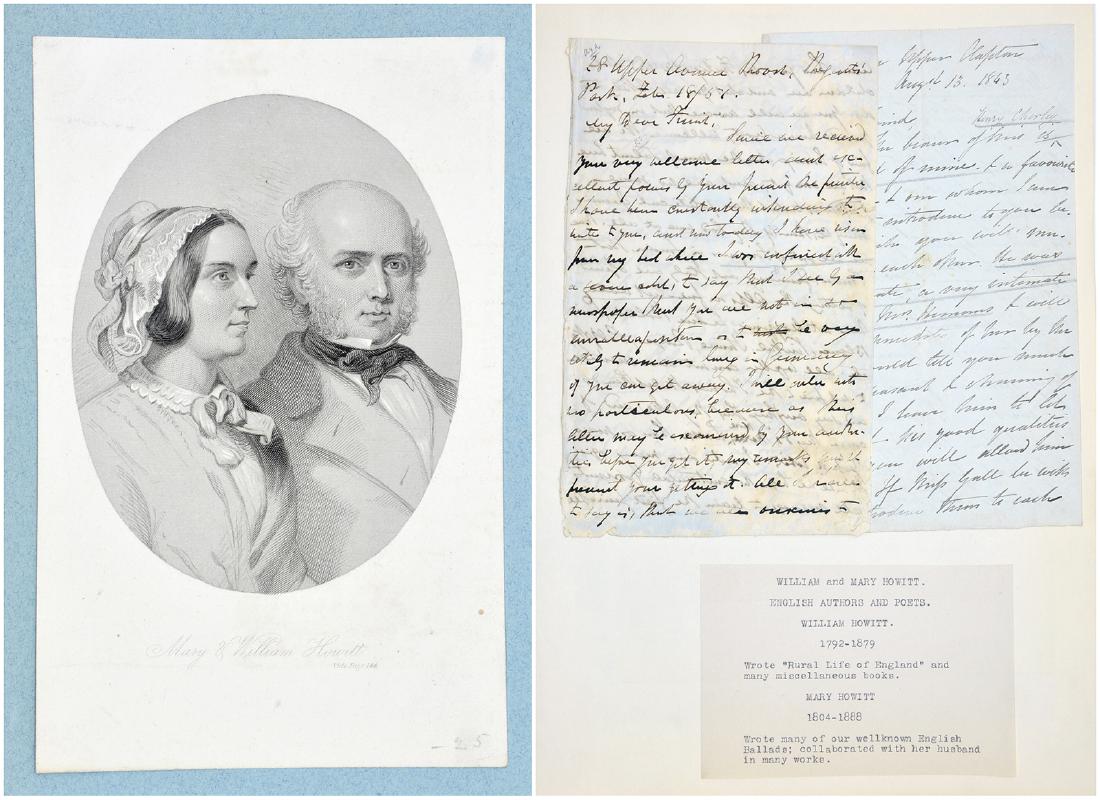 Mary & William Howitt
- 25
28 Upper Avenue Road, Regent's
Park, Feb. 18/51.
My Dear Friend,
Since we received
your very welcome letter, and ex-
cellent poems by your friend the
I have been constantly intending to
write to you, and not today I have risen
from my bed where I was confined with
a severe cold, to say that I see by a
newspaper that you are not in
or to be very
likely to remain long in Germany
if you can get away. I will enter into
no particulars, because as this
letter may be examined by your
ties before you get it, my remarks
prevent your getting it. All I
to say is, that we are anxious
Upper Clapton
Augt 13. 1843
Henry Chorley
bearer of this is
of mine & a favourite
& one whom I am
introduce to you be-
you will
each other. He was
a very intimate
Mrs. Hemans & will
of her by the
tell you much
pleasant & charming of
I leave him to let
his good qualities
you will allow him
If Miss Gall be with
them to each
WILLIAM and MARY HOWITT.
ENGLISH AUTHORS AND POETS.
WILLIAM HOWITT.
1792-1879
Wrote "Rural Life of England" and
many miscellaneous books.
MARY HOWITT
1804-1888
Wrote many of our wellknown English
Ballads; collaborated with her husband
in many works.